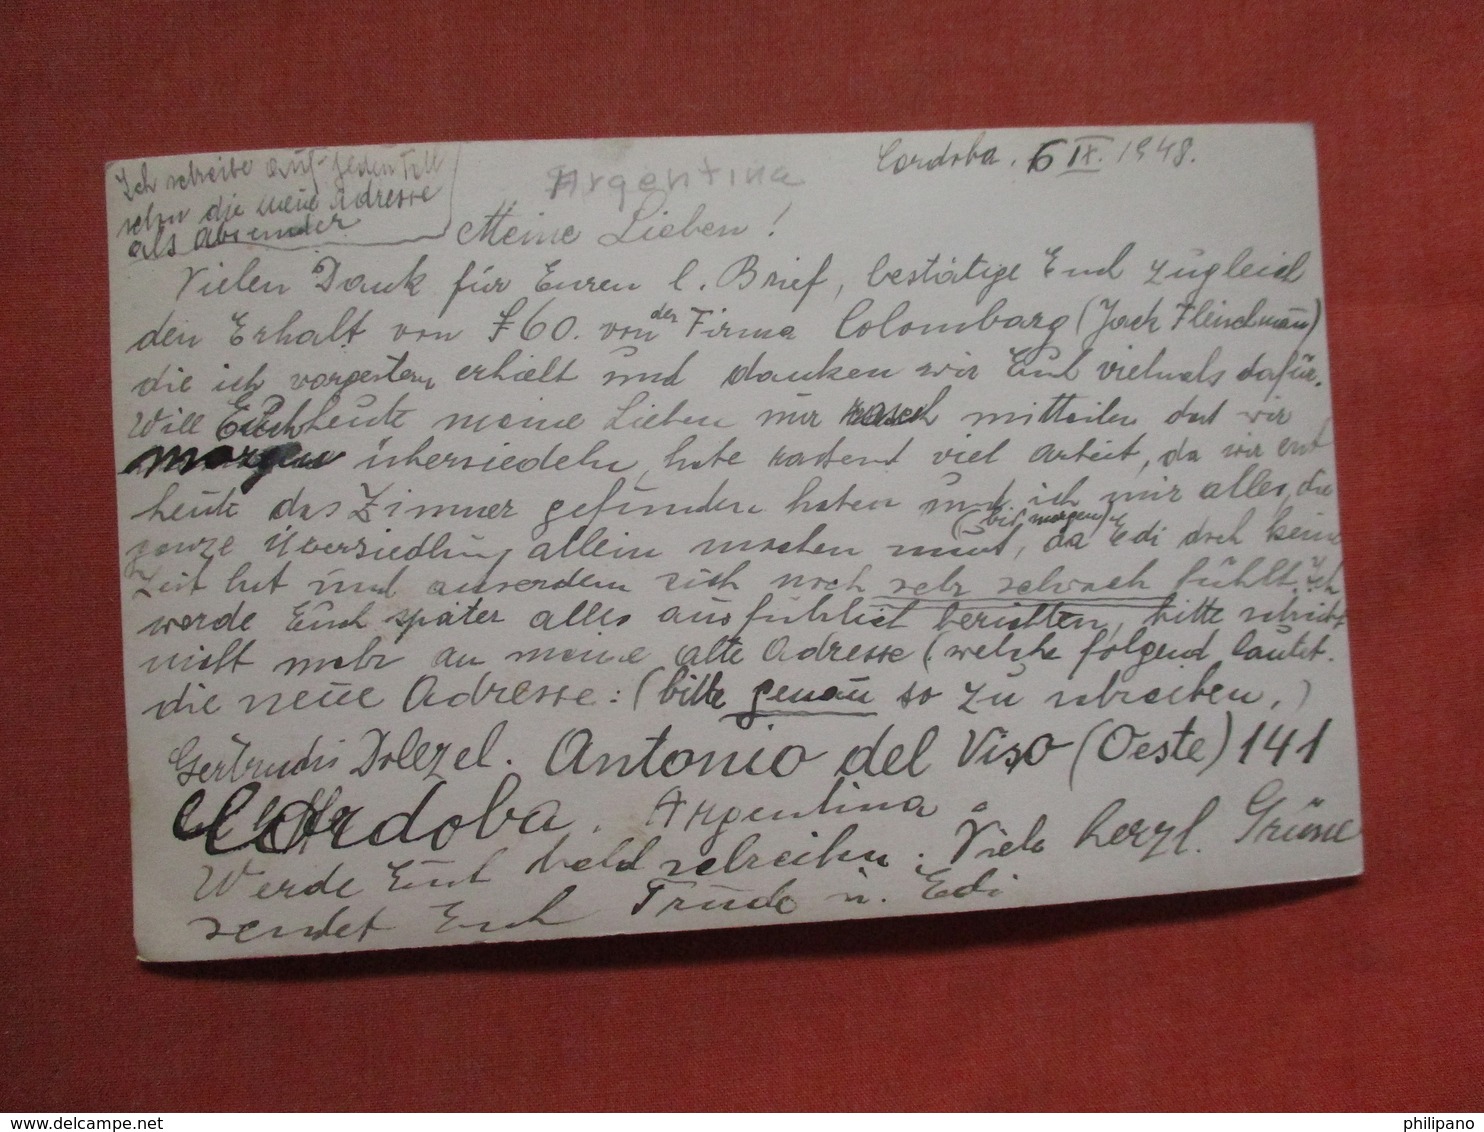 Cordoba. 6 IX. 1948.
Argentina
Ich schreibe auf jeden Fall
schon die neue Adresse
als Absender
Meine Lieben!
Vielen Dank für Euren l. Brief, bestätige Euch zugleich
den Erhalt von £60. von der Firma Colombarg (Jack Fleischmann)
die ich vorgestern erhielt und danken wir Euch vielmals dafür.
Will Euch heute meine Lieben nur rasch mitteilen das wir
morgen übersiedeln, habe rasend viel Arbeit, da wir erst
heute das Zimmer gefunden haben und ich mir alles, die
ganze Übersiedlung allein machen muss, (bis morgen) da Edi doch keine
Zeit hat und ausserdem sich noch sehr schwach fühlt. Ich
werde Euch später alles ausführlich berichten, bitte schreibt
nicht mehr an meine alte Adresse (welche folgend lautet.
die neue Adresse: (bitte genau so zu schreiben.)
Gertrudis Dolezel. Antonio del Viso (Oeste) 141
Cordoba. Argentina
Werde Euch bald schreiben. Viele herzl. Grüsse
sendet Euch Trude u. Edi
delcampe.net
philipano